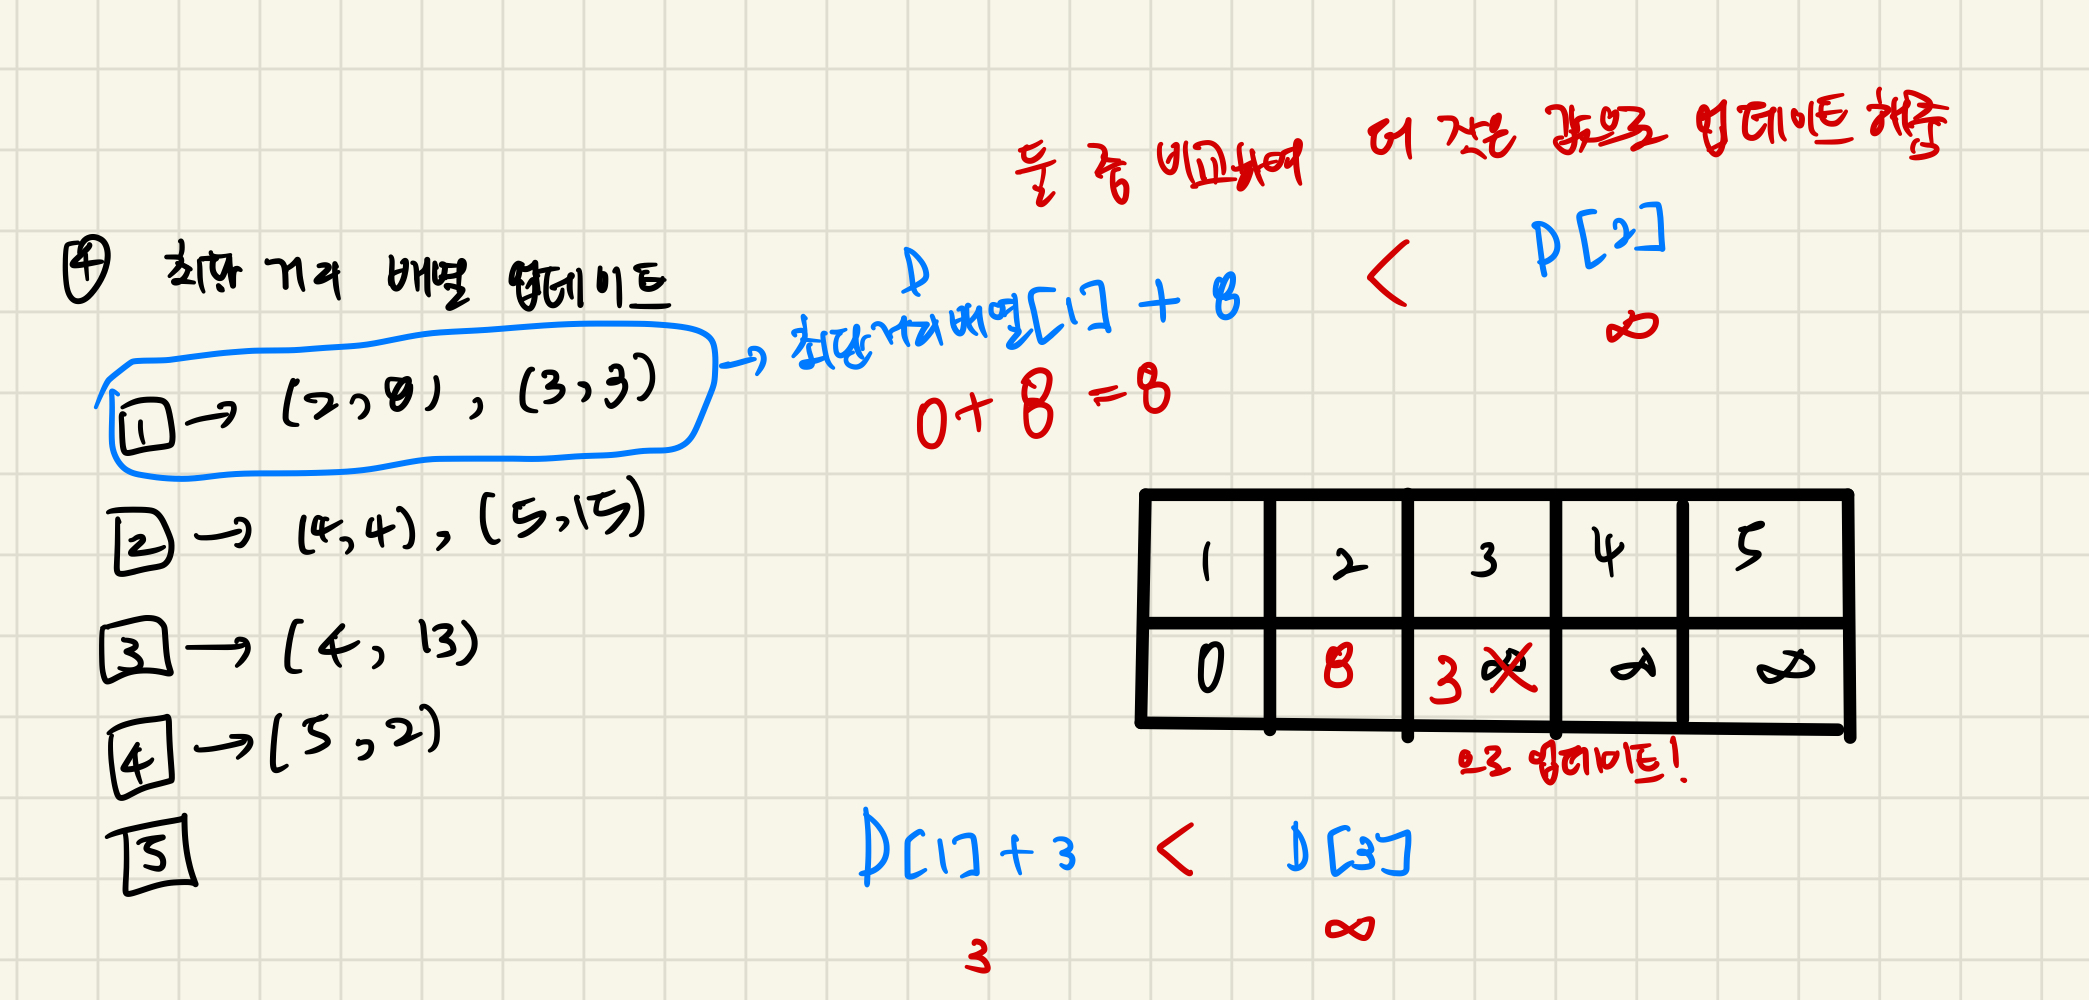 둘 중 비교하여 더 작은 값으로 업데이트 해줌
④ 최단 거리 배열 업데이트
D
최단거리배열[1] + 8 < D[2]
0 + 8 = 8 ∞
1 → (2, 8), (3, 3) →
2 → (4, 4), (5, 15)
3 → (4, 13)
4 → (5, 2)
5
1 2 3 4 5
0 8 3 ∞ ∞ ∞
으로 업데이트!
D[1] + 3 < D[3]
3 ∞